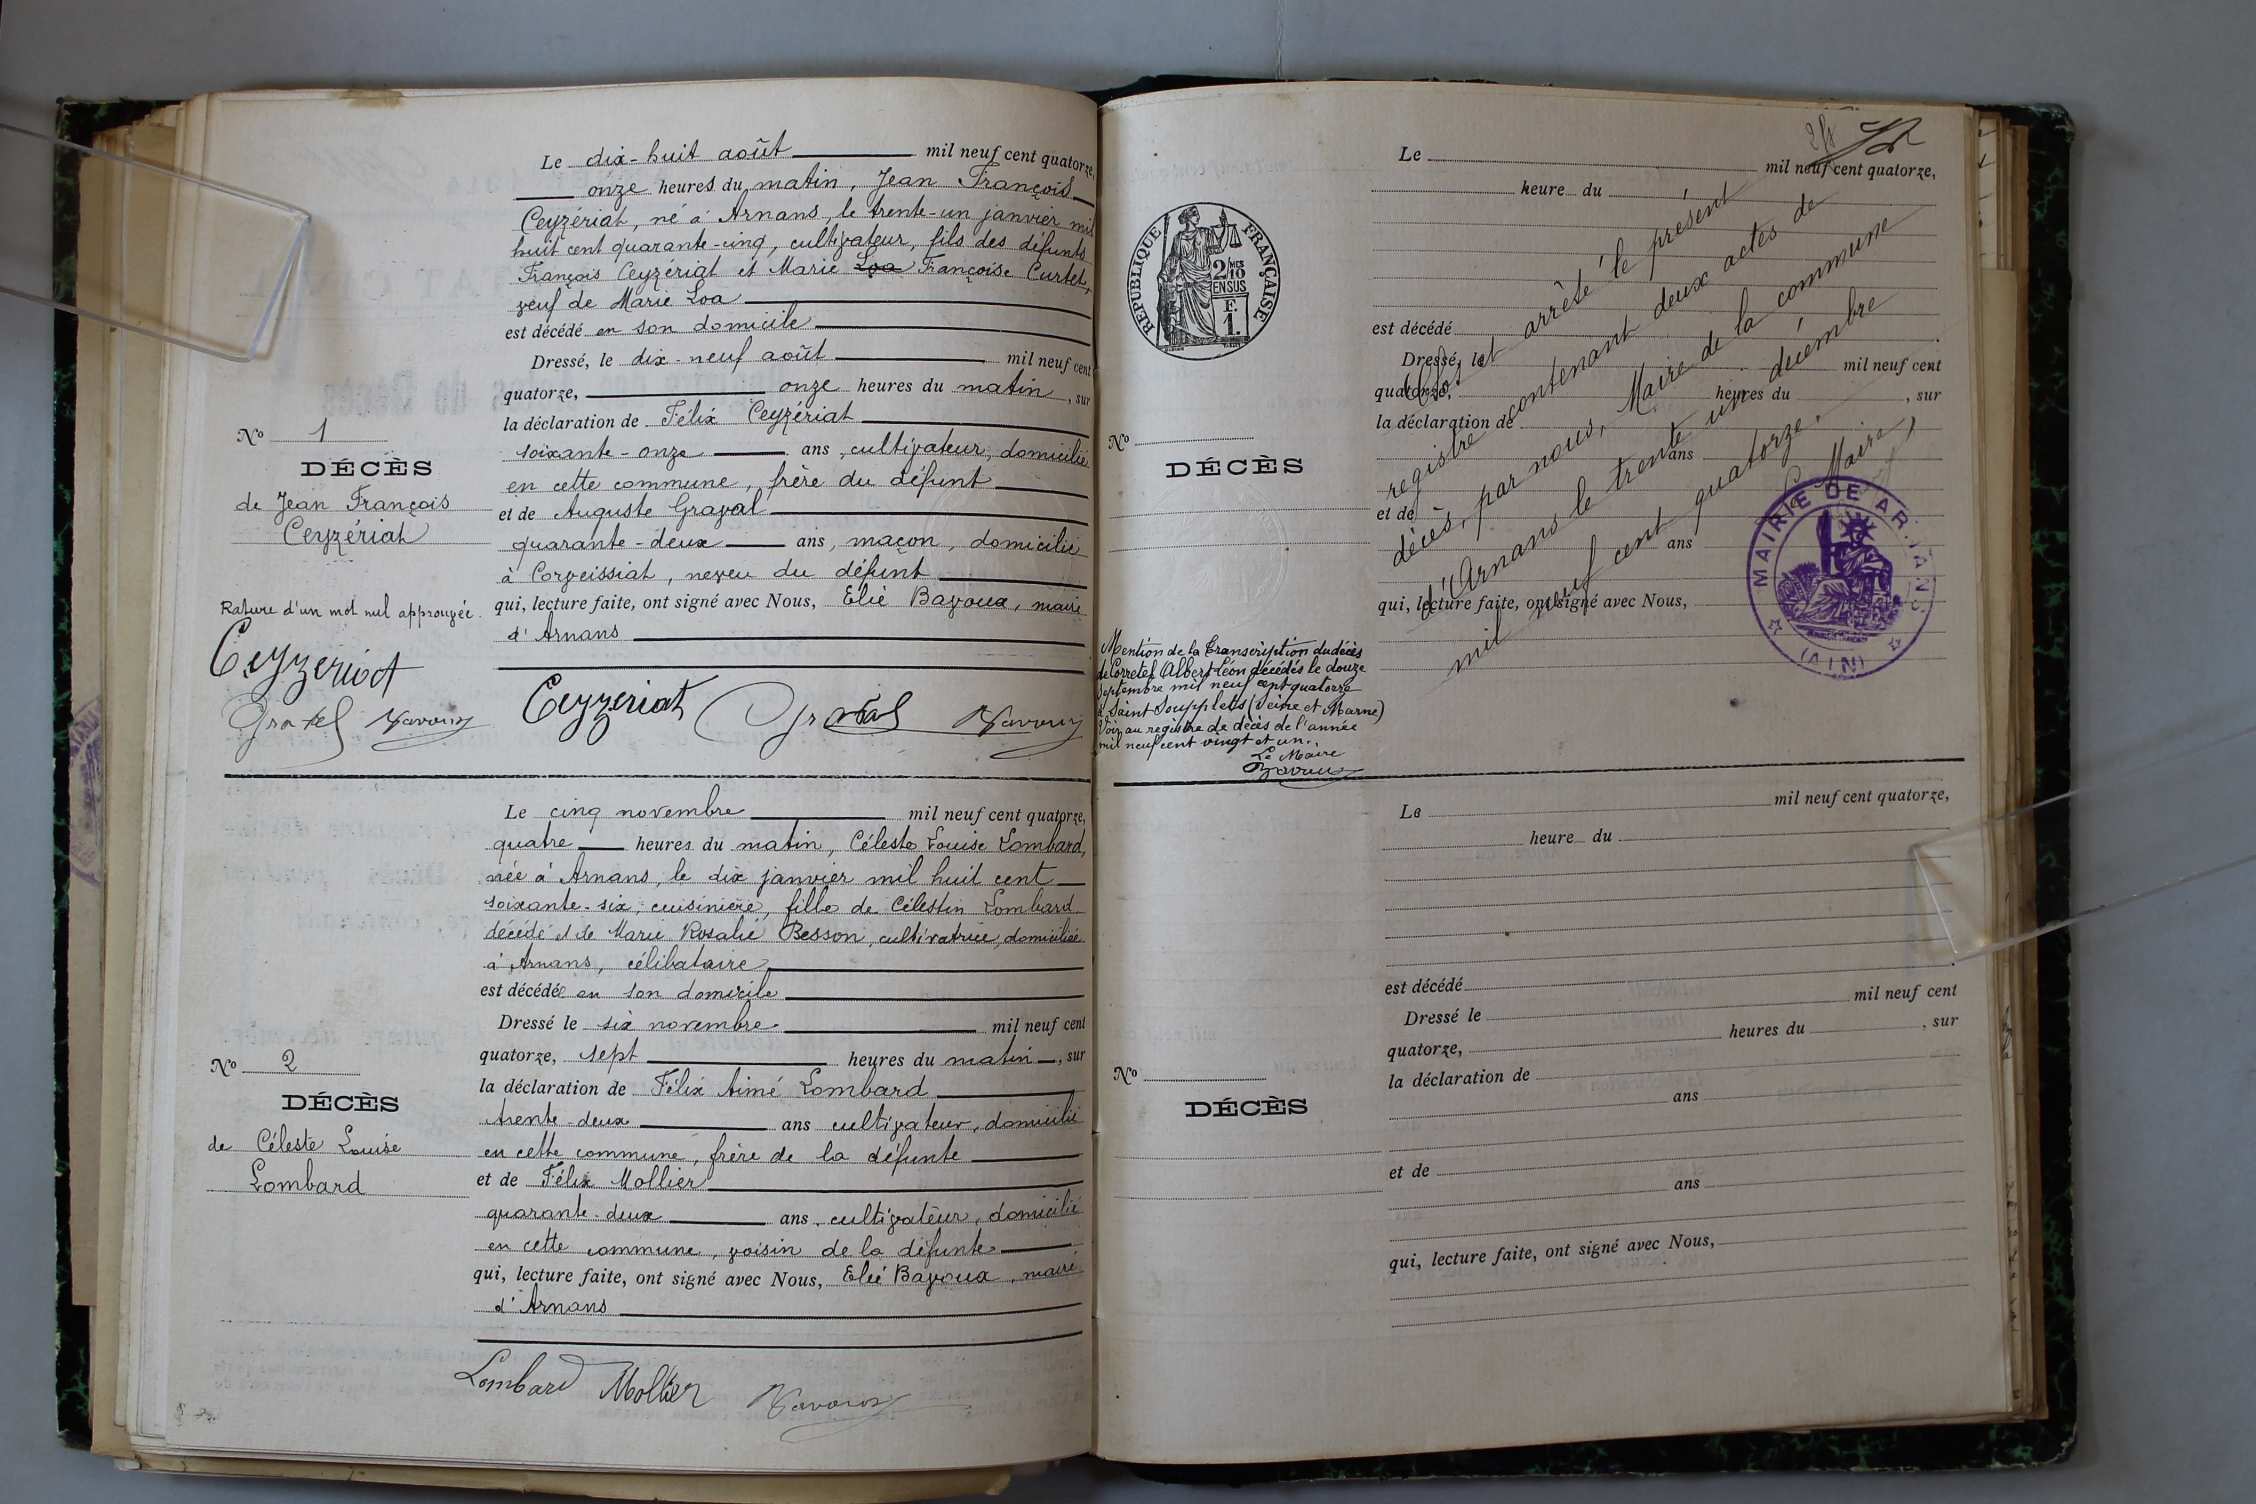 Le dix-huit août mil neuf cent quatorze,
onze heures du matin, Jean François
Ceyzériat, né à Arnans, le trente-un janvier mil
huit cent quarante-cinq, cultivateur, fils des défunts
François Ceyzériat et Marie Loa Françoise Curtet,
veuf de Marie Loa
est décédé en son domicile
Dressé, le dix-neuf août mil neuf cent
quatorze, onze heures du matin, sur
la déclaration de Félix Ceyzériat
soixante-onze ans, cultivateur, domicilié
en cette commune, frère du défunt
et de Auguste Graval
quarante-deux ans, maçon, domicilié
à Corveissiat, neveu du défunt
qui, lecture faite, ont signé avec Nous, Elie Bavoux, maire
d'Arnans
No 1
DÉCÈS
de Jean François
Ceyzériat
Rature d'un mot nul approuvée.
Ceyzeriat
Bavoux
Ceyzeriat Bavoux
Le cinq novembre mil neuf cent quatorze,
quatre heures du matin, Céleste Louise Lombard,
née à Arnans, le dix janvier mil huit cent
soixante-six, cuisinière, fille de Célestin Lombard
décédé et de Marie Rosalie Besson, cultivatrice, domiciliée
à Arnans, célibataire
est décédée en son domicile
Dressé le six novembre mil neuf cent
quatorze, sept heures du matin, sur
la déclaration de Félix Aimé Lombard
trente-deux ans cultivateur, domicilié
en cette commune, frère de la défunte
et de Félix Mollier
quarante-deux ans, cultivateur, domicilié
en cette commune, voisin de la défunte
qui, lecture faite, ont signé avec Nous, Elie Bavoux, maire
d'Arnans
No 2
DÉCÈS
de Céleste Louise
Lombard
Lombard Mollier Bavoux
RÉPUBLIQUE FRANÇAISE
2/10
EN SUS
F.
1.
Le mil neuf cent quatorze,
heure du
est décédé
Dressé, le mil neuf cent
quatorze, heures du , sur
la déclaration de
ans
et de
ans
qui, lecture faite, ont signé avec Nous,
No
DÉCÈS
Clos et arrêté le présent
registre contenant deux actes de
décès, par nous, Maire de la commune
d'Arnans le trente un décembre
mil neuf cent quatorze.
Le Maire,
MAIRIE DE ARNANS
(AIN)
Mention de la Transcription du décès
de Corretel Albert Léon décédés le douze
Septembre mil neuf cent quatorze
à Saint Soupplets (Seine et Marne)
Voir au registre de décès de l'année
mil neuf cent vingt et un.
Le Maire
Bavoux
Le mil neuf cent quatorze,
heure du
est décédé
Dressé le mil neuf cent
quatorze, heures du , sur
la déclaration de
ans
et de
ans
qui, lecture faite, ont signé avec Nous,
No
DÉCÈS